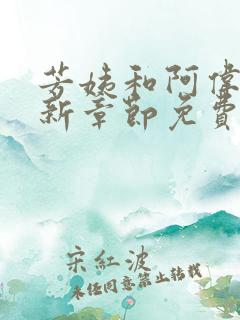 芳姨和阿偉
新章節免費
宋紅波
未经同意禁止转载